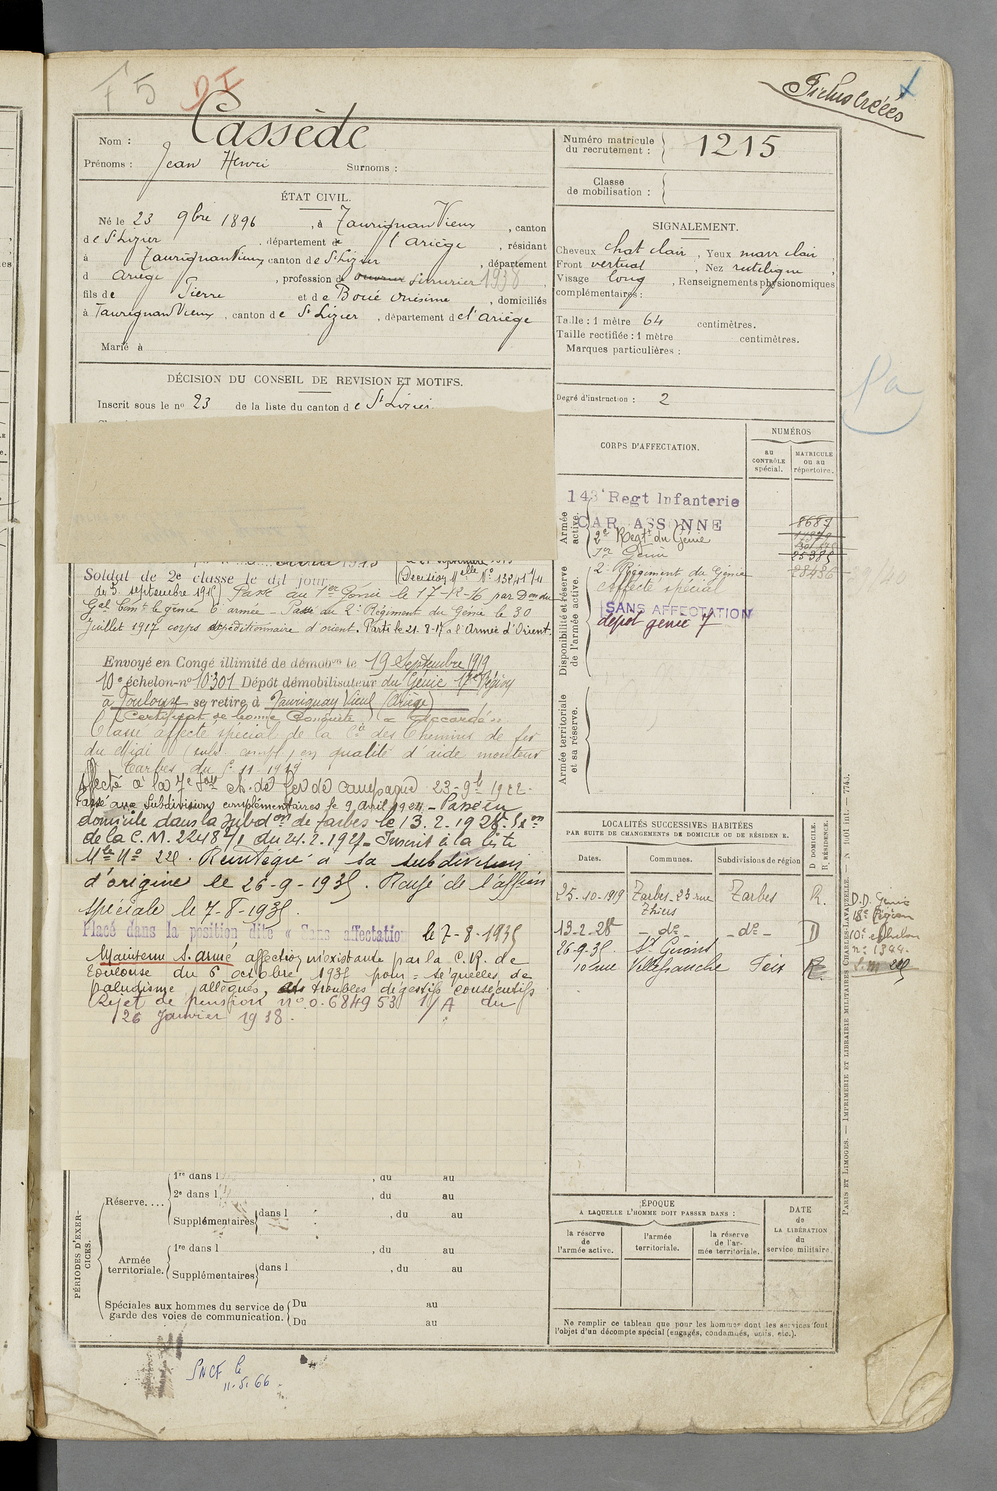 F 5 DI
Fiches créées
Nom : Cassède
Prénoms : Jean Henri Surnoms :
Numéro matricule du recrutement : 1215
Classe de mobilisation :
ÉTAT CIVIL.
Né le 23 9bre 1896, à Taurignan Vieux, canton
de St Lizier, département de l'Ariège, résidant
à Taurignan Vieux, canton de St Lizier, département
d Ariège, profession de ouvrier serrurier 1938
fils de Pierre et de Boué Onésime, domiciliés
à Taurignan Vieux, canton de St Lizier, département de l'Ariège
Marié à
SIGNALEMENT.
Cheveux chat clair, Yeux marr clair
Front vertical, Nez rectiligne,
Visage long, Renseignements physionomiques
complémentaires :
Taille : 1 mètre 64 centimètres.
Taille rectifiée : 1 mètre centimètres.
Marques particulières :
DÉCISION DU CONSEIL DE REVISION ET MOTIFS.
Inscrit sous le no 23 de la liste du canton de St Lizier
Degré d'instruction : 2
Soldat de 2e classe le dit jour
(Décision Mlle No 13841 7/4
de 5 septembre 1915) Passé au 1er Génie le 17-12-16 par Don du
Gal Comt le génie armée - Passé du 2e Régiment du Génie le 30
Juillet 1917 corps expéditionnaire d'orient. Parti le 21-8-17 à l'Armée d'Orient.
Envoyé en Congé illimité de démobon le 19 Septembre 1919
10e échelon-no 10301 Dépôt démobilisateur du Génie 17e Région
à Toulouse se retire à Taurignan Vieux (Ariège)
(Certificat de bonne Conduite) "Accordé"
Classé affecté spécial de la Cie des Chemins de fer
du Midi (subd. compl.) en qualité d'aide monteur
Tarbes du 11-1919
Affecté à la 7e Son ch. de fer de campagne 23-9b 1922.
Passé aux Subdivisions complémentaires le 9 avril 1924 - Passé en
domicile dans la Subdon de Tarbes le 13.2.1928
de la C.M. 22487/1 du 24.2.1927 - Inscrit à la liste
Mle No 228. Réintégré à sa subdivision
d'origine le 26-9-1935. Rayé de l'affton
spéciale le 7-8-1935.
Placé dans la position dite « Sans affectation le 7-8-1935
Maintenu S. armé affection inexistante par la C.R. de
Toulouse du 6 octobre 1935 pour "séquelles de
paludisme allégués, troubles digestifs consécutifs
Rejet de pension no 0.684953 1/A du
26 Janvier 1938.
CORPS D'AFFECTATION.
NUMÉROS
AU CONTRÔLE spécial.
MATRICULE ou au répertoire.
Armée active.
143e Regt Infanterie
CARCASSONNE
8687
2e Regt du Génie
1er Génie
25385
Disponibilité et réserve de l'armée active.
2e Régiment du Génie
28486
affecté spécial
SANS AFFECTATION
dépot génie 7
Armée territoriale et sa réserve.
Pa
LOCALITÉS SUCCESSIVES HABITÉES
PAR SUITE DE CHANGEMENTS DE DOMICILE OU DE RÉSIDENCE.
Dates. Communes. Subdivisions de région D DOMICILE. R RÉSIDENCE.
25-10-1919 Tarbes 23 rue Thiers Tarbes R.
13-2-28 - do - - do - D
26-9-35 St Girons
10 rue Villefranche Foix R
D.D. Génie
18e Région
10e echelon
no 1344.
PÉRIODES D'EXERCICES.
Réserve....
1re dans l , du au
2e dans l , du au
Supplémentaires dans l , du au
Armée territoriale.
1re dans l , du au
Supplémentaires dans l , du au
Spéciales aux hommes du service de garde des voies de communication.
Du au
Du au
ÉPOQUE
A LAQUELLE L'HOMME DOIT PASSER DANS :
la réserve de l'armée active.
l'armée territoriale.
la réserve de l'armée territoriale.
DATE de LA LIBÉRATION du service militaire.
Ne remplir ce tableau que pour les hommes dont les services font
l'objet d'un décompte spécial (engagés, condamnés, omis, etc.).
PARIS ET LIMOGES. — IMPRIMERIE ET LIBRAIRIE MILITAIRES CHARLES-LAVAUZELLE.
SNCF le
11.5.66